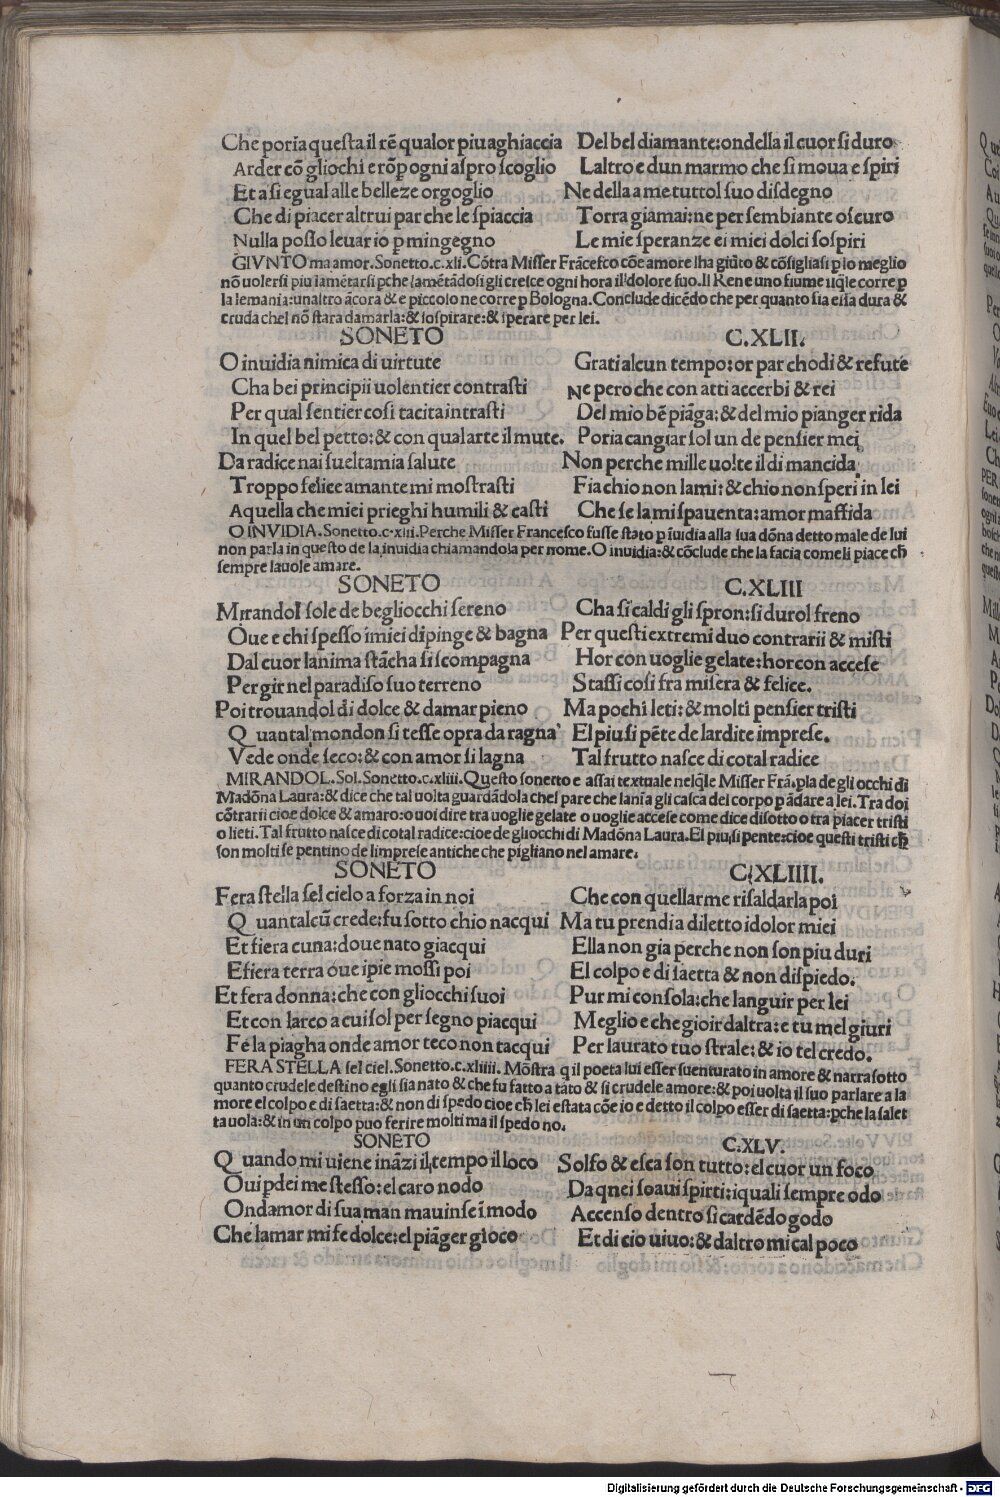 Che poria questa il rē qualor piu aghiaccia
Arder cō gliochi e rōp ogni aspro scoglio
Et a si egual alle belleze orgoglio
Che di piacer altrui par che le spiaccia
Nulla posso leuar io p mingegno
Del bel diamante:ondella il cuor si duro
Laltro e dun marmo che si moua e spiri
Ne della a me tuttol suo disdegno
Torra giamai:ne per sembiante oscuro
Le mie speranze ei miei dolci sospiri
GIVNTO ma amor.Sonetto.c.xli.Cōtra Misser Frācesco cōe amore lha giūto & cōsigliasi p lo meglio
nō uolersi piu lamētarsi pche lamētādosi gli cresce ogni hora il dolore suo.Il Ren e uno fiume ilqle corre p
la lemania:unaltro ācora & e piccolo ne corre p Bologna.Conclude dicēdo che per quanto sia essa dura &
cruda chel nō stara damarla:& sospirare:& sperare per lei.
SONETO C.XLII.
O inuidia nimica di uirtute
Cha bei principii uolentier contrasti
Per qual sentier cosi tacita intrasti
In quel bel petto:& con qual arte il mute.
Da radice nai sueltamia salute
Troppo felice amante mi mostrasti
A quella che miei prieghi humili & casti
Grati alcun tempo:or par chodi & refute
Ne pero che con atti accerbi & rei
Del mio bē piāga:& del mio pianger rida
Poria cangiar sol un de pensier mei
Non perche mille uolte il di mancida
Fia chio non lami:& chio non speri in lei
Che se la mi spauenta:amor massida
O INVIDIA.Sonetto.c.xlii.Perche Misser Francesco fusse stato p iuidia alla sua dōna detto male de lui
non parla in questo de la inuidia chiamandola per nome.O inuidia:& cōclude che la facia come li piace ch
sempre lauole amare.
SONETO C.XLIII
Mirandol sole de begliocchi sereno
Oue e chi spesso i miei dipinge & bagna
Dal cuor lanima stācha si scompagna
Per gir nel paradiso suo terreno
Poi trouandol di dolce & damar pieno
Quantal mondon si tesse opra da ragna
Vede onde seco:& con amor si lagna
Cha si caldi gli spron:si durol freno
Per questi extremi duo contrarii & misti
Hor con uoglie gelate:hor con accese
Stassi cosi fra misera & felice.
Ma pochi leti:& molti pensier tristi
El piu si pēte de lardite imprese.
Tal frutto nasce di cotal radice
MIRANDOL.Sol.Sonetto.c.xliii.Questo sonetto e assai textuale nelqle Misser Frā.pla de gli occhi di
Madōna Laura:& dice che tal uolta guardādola chel pare che lania gli casca del corpo p ādare a lei.Tra doi
cōtrarii cioe dolce & amaro:o uoi dire tra uoglie gelate o uoglie accese come dice disotto o tra piacer tristi
o lieti.Tal frutto nasce di cotal radice:cioe de gliocchi di Madōna Laura.El piu si pente:cioe questi tristi ch
son molti se pentino de limprese antiche che pigliano nel amare.
SONETO C.XLIIII.
Fera stella sel cielo a forza in noi
Quantalcū crede:fu sotto chio nacqui
Et fiera cuna:doue nato giacqui
E fiera terra oue ipie mossi poi
Et fera donna:che con gliocchi suoi
Et con larco a cui sol per segno piacqui
Fe la piagha onde amor teco non tacqui
Che con quellarme risaldarla poi
Ma tu prendi a diletto i dolor miei
Ella non gia perche non son piu duri
El colpo e di saetta & non dispiedo.
Pur mi consola:che languir per lei
Meglio e che gioir daltra:e tu mel giuri
Per laurato tuo strale:& io tel credo.
FERA STELLA sel ciel.Sonetto.c.xliiii.Mōstra q il poeta lui esser suenturato in amore & narra sotto
quanto crudele destino egli sia nato & che fu fatto a tāto & si crudele amore:& poi uolta il suo parlare a la
more el colpo e di saetta:& non di spedo cioe ch lei estata cōe io e detto il colpo esser di saetta:pche la saiet
ta uola:& in un colpo puo ferire molti ma il spedo no.
SONETO C.XLV.
Quando mi uiene ināzi il tempo il loco
Oui pdei me stesso:el caro nodo
Ondamor di sua man mauinse ī modo
Che lamar mi fe dolce:el piāger gioco
Solfo & esca son tutto:el cuor un foco
Da qnei soaui spirti:iquali sempre odo
Accenso dentro si cardēdo godo
Et di cio uiuo:& daltro mi cal poco
Digitalisierung gefördert durch die Deutsche Forschungsgemeinschaft - DFG